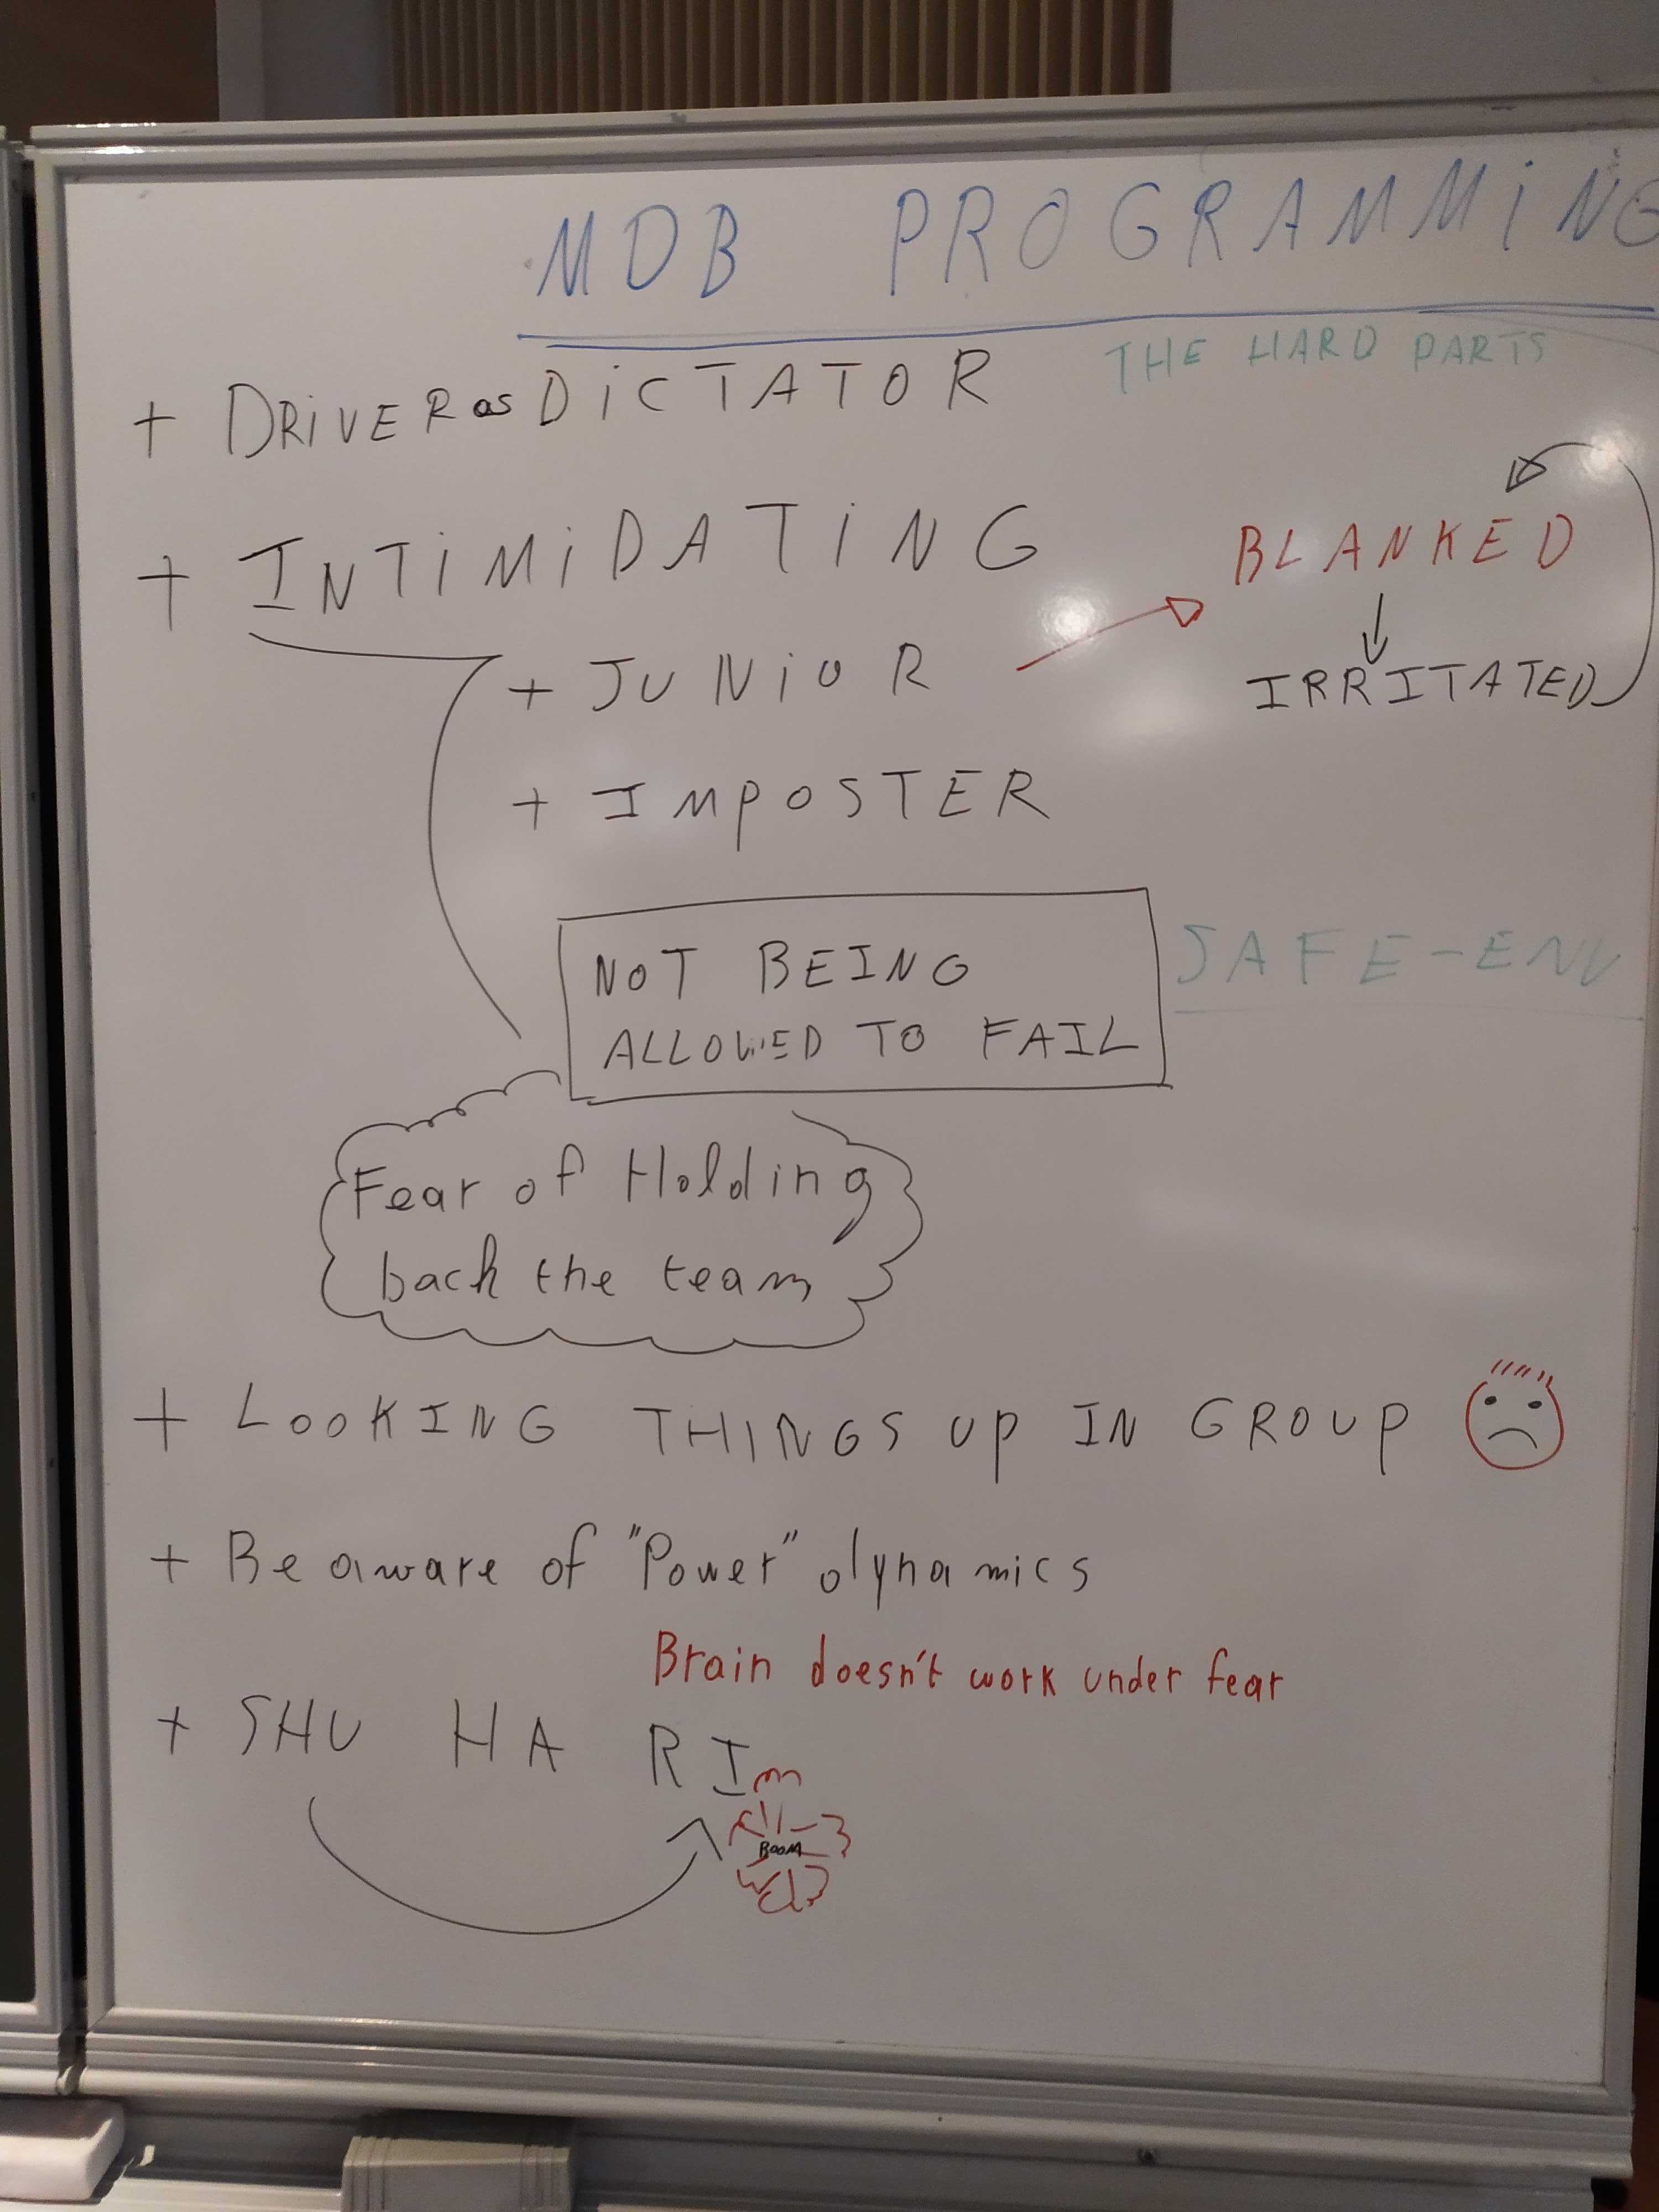 MOB PROGRAMMING
THE HARD PARTS
+ DRIVER as DICTATOR
+ INTIMIDATING
BLANKED
+ JUNIOR
IRRITATED
+ IMPOSTER
NOT BEING
ALLOWED TO FAIL
SAFE-ENV
Fear of Holding
back the team
+ LOOKING THINGS UP IN GROUP
+ Be aware of "Power" dynamics
Brain doesn't work under fear
+ SHU HA RI
BOOM